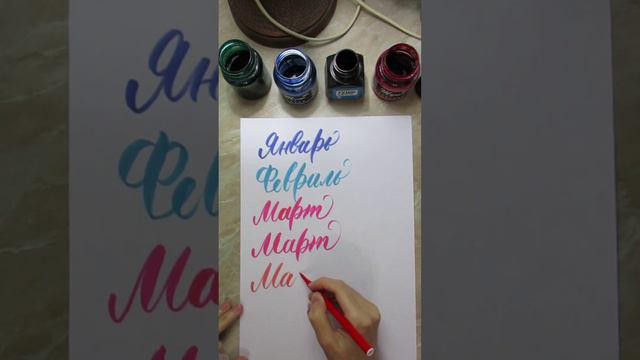 Январь
Февраль
Март
Март
Ма